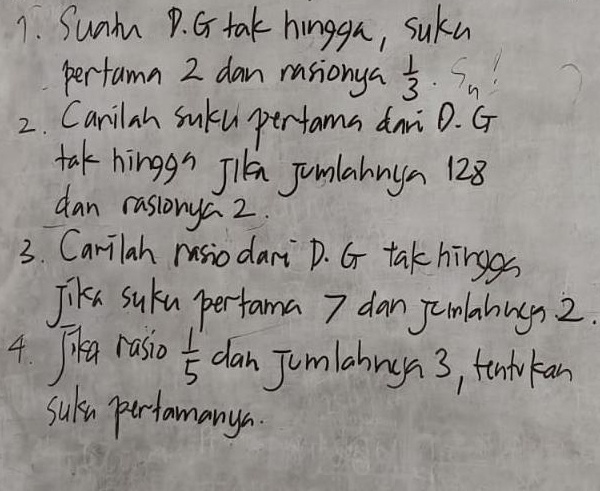 1. Suatu D.G tak hingga, suku
pertama 2 dan rasionya 1/3. Sn!
2. Carilah suku pertama dari D.G
tak hingga jika jumlahnya 128
dan rasionya 2.
3. Carilah rasio dari D.G tak hingga
jika suku pertama 7 dan jumlahnya 2.
4. Jika rasio 1/5 dan jumlahnya 3, tentukan
suku pertamanya.